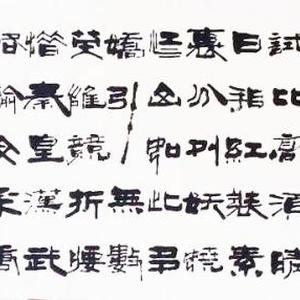 試比高須晴
日看紅裝素
裹分外妖嬈
江山如此多
嬌引無數
英雄競折腰
惜秦皇漢武
略輸文采